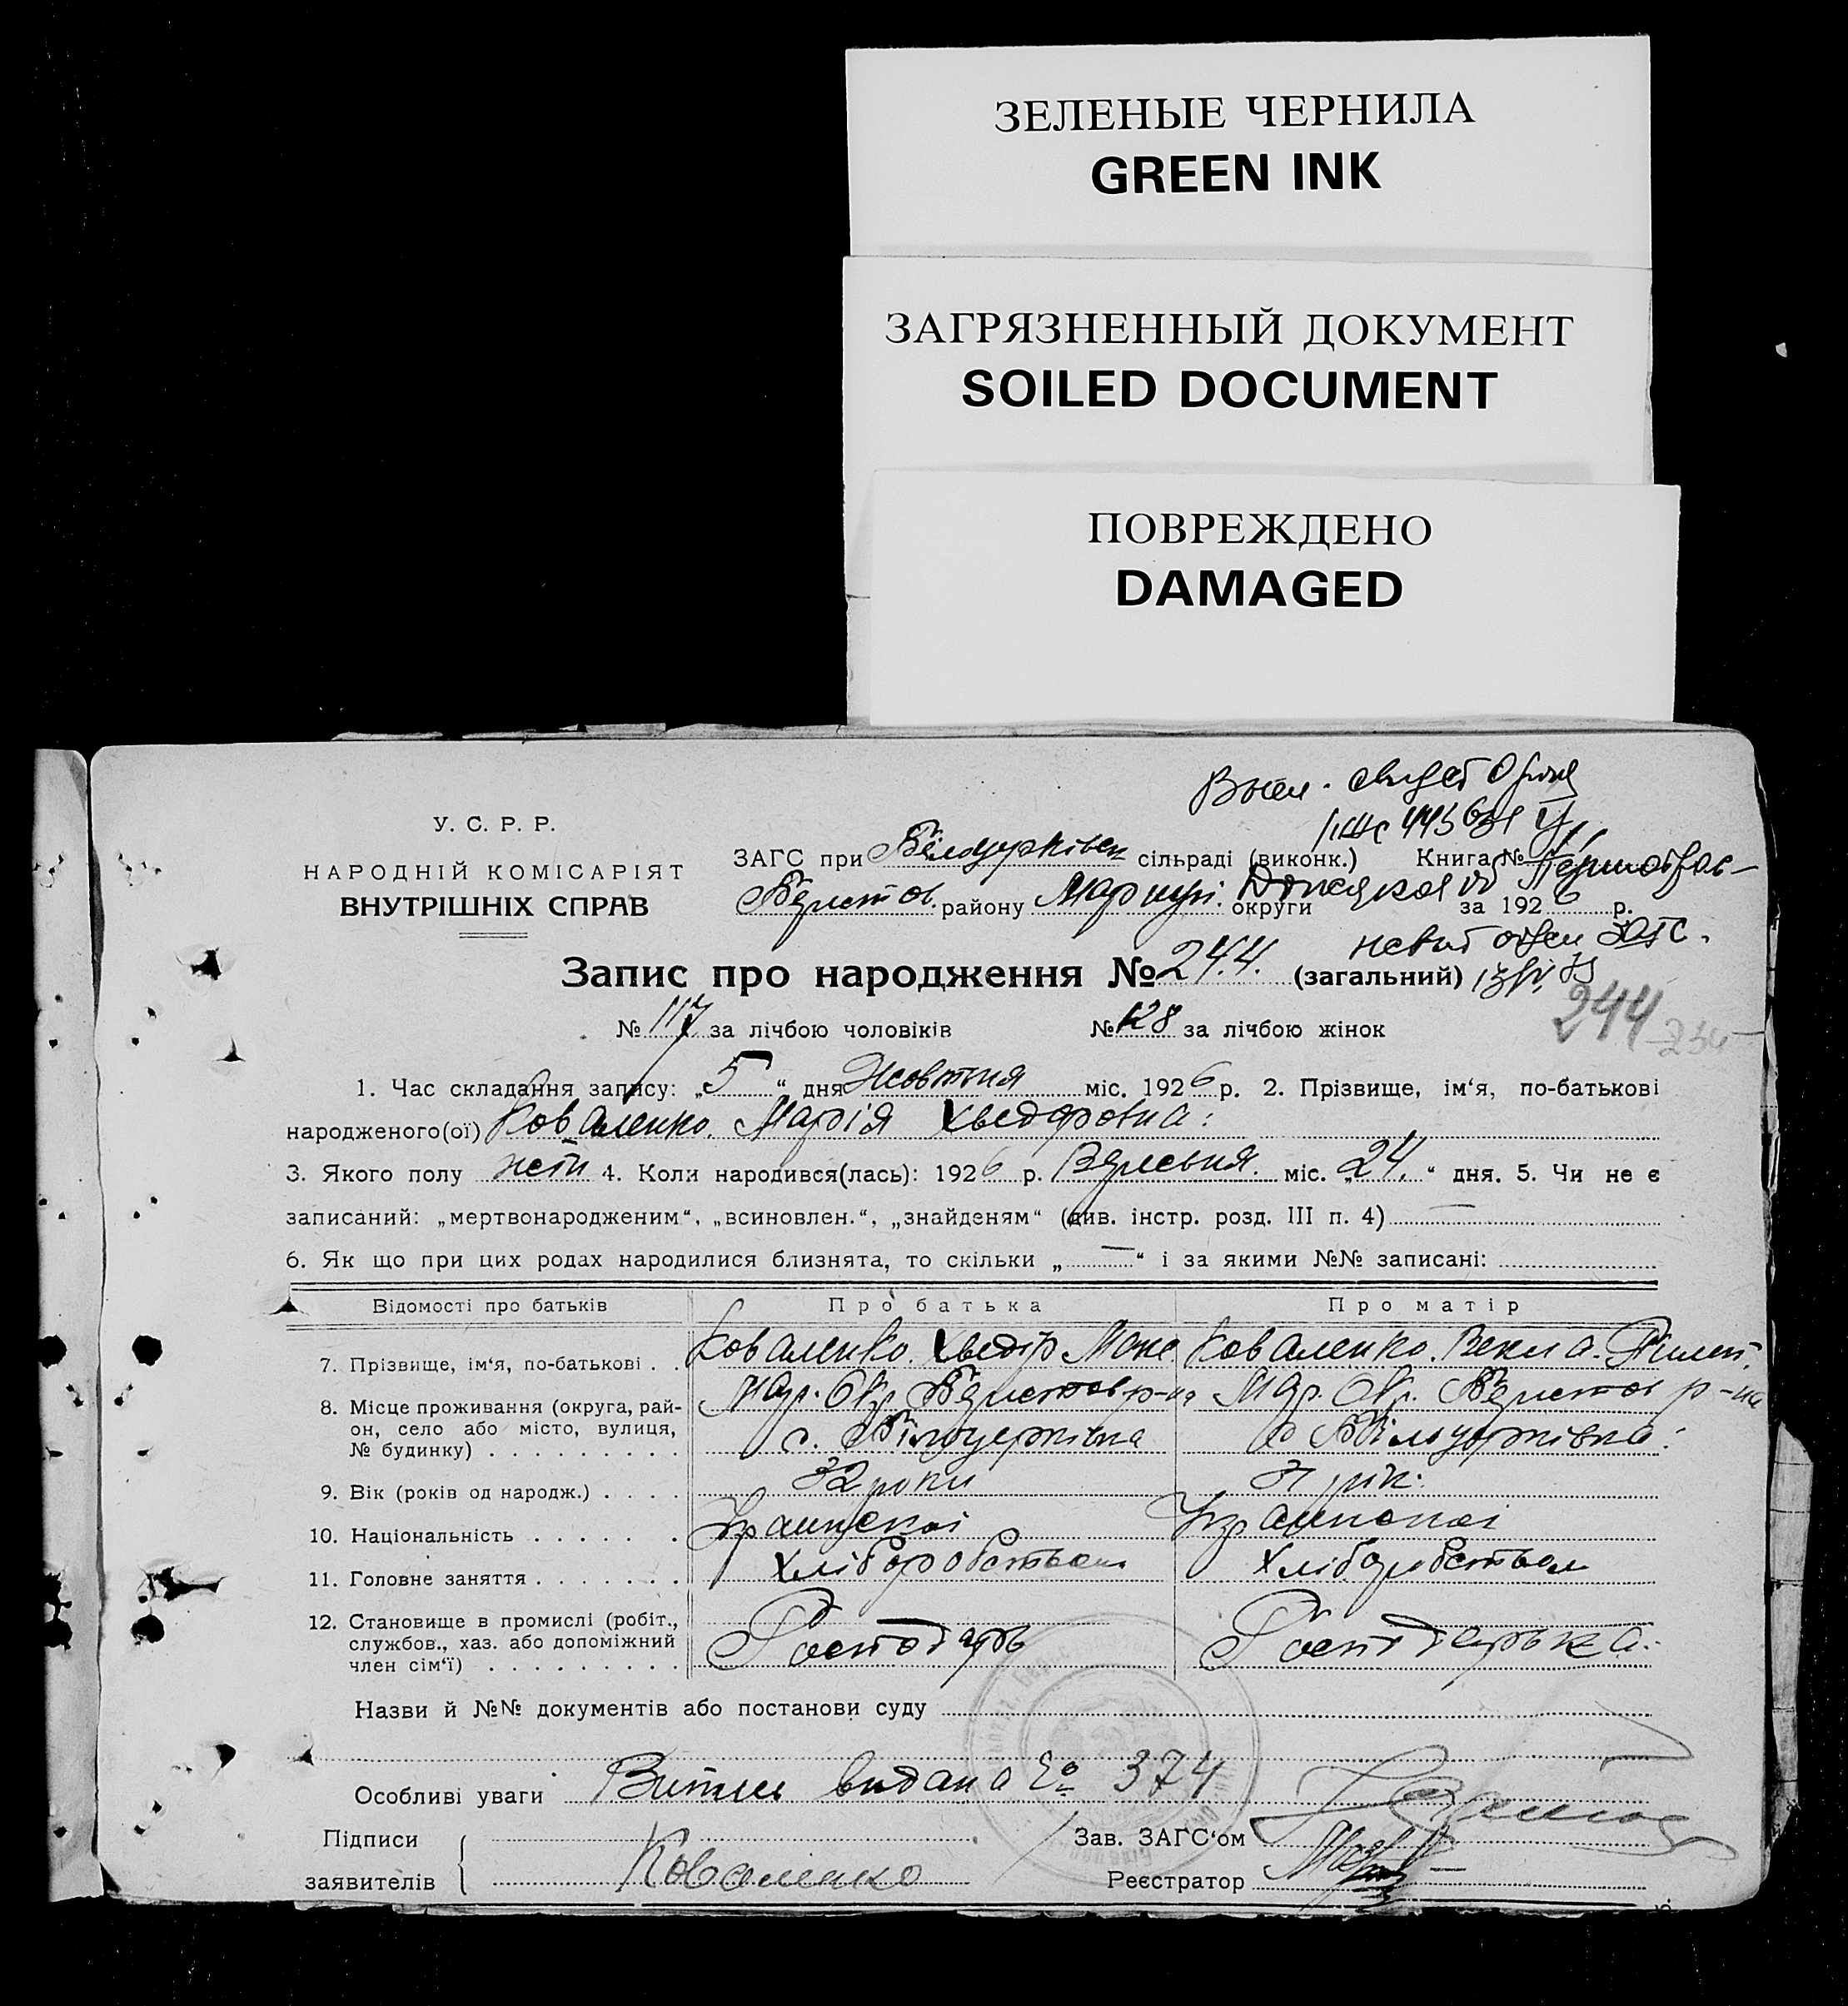 ЗЕЛЕНЫЕ ЧЕРНИЛА
GREEN INK
ЗАГРЯЗНЕННЫЙ ДОКУМЕНТ
SOILED DOCUMENT
ПОВРЕЖДЕНО
DAMAGED
У. С. Р. Р.
НАРОДНІЙ КОМІСАРІЯТ
ВНУТРІШНІХ СПРАВ
ЗАГС при Білоцерківск сільраді (виконк.) Книга №
Берестов. району Маріуп. округи за 1926 р.
Запис про народження № 244. (загальний)
244
№ 117 за лічбою чоловіків № 128 за лічбою жінок
1. Час складання запису: „5“ дня Жовтня міс. 1926 р. 2. Прізвище, ім‘я, по-батькові
народженого(ої) Коваленко. Марія Хведоровна:
3. Якого полу жен 4. Коли народився(лась): 1926 р. Вересня. міс. „24.“ дня. 5. Чи не є
записаний: „мертвонародженим“, „всиновлен.“, „знайденям“ (див. інстр. розд. III п. 4) —
6. Як що при цих родах народилися близнята, то скільки „—“ і за якими №№ записані:
Відомості про батьків Про батька Про матір
7. Прізвище, ім‘я, по-батькові . . Коваленко. Хведір Коваленко. Векла.
8. Місце проживання (округа, рай- Мар. Окр. Берестов р-на Мар. Окр. Берестов р-на
он, село або місто, вулиця,
№ будинку) . . . . . . . . . с. Білоцерківка с Білоцерківка:
9. Вік (років од народж.) . . . . 32 роки 31 рік.
10. Національність . . . . . . . Українскої Українскої
11. Головне заняття . . . . . . . Хліборобством Хліборобством
12. Становище в промислі (робіт.,
службов., хаз. або допоміжний Господарь Господарька.
член сім‘ї) . . . . . . . . .
Назви й №№ документів або постанови суду
Особливі уваги Витяг видана № 374
Підписи Зав. ЗАГС‘ом
заявителів Коваленко Реєстратор